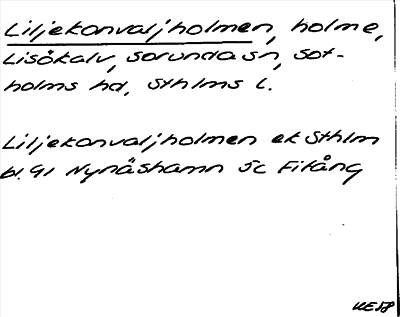 Liljekonvaljholmen, holme,
Lisökalv, Sorunda sn, Sot-
holms hd, Sthlms l.
Liljekonvaljholmen ek Sthlm
bl. 91 Nynäshamn 5c Fifång